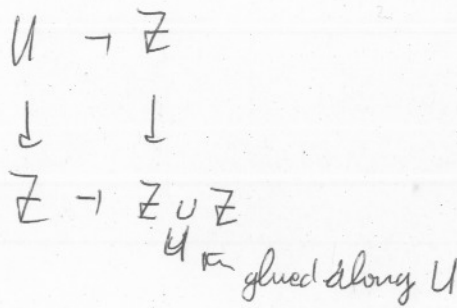 U → Z
↓ ↓
Z → Z ∪ Z
U
glued along U